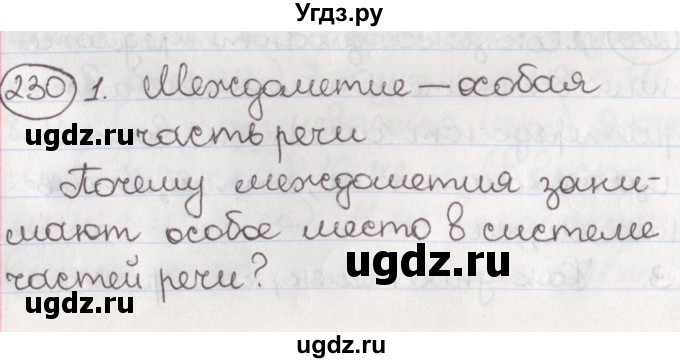 Угдз.ру
230 1. Междометие — особая
ugdz.ru часть речи ugdz.ru
Почему междометия зани-
мают особое место в системе
частей речи? ugdz.ru
ugdz.ru ugdz.ru